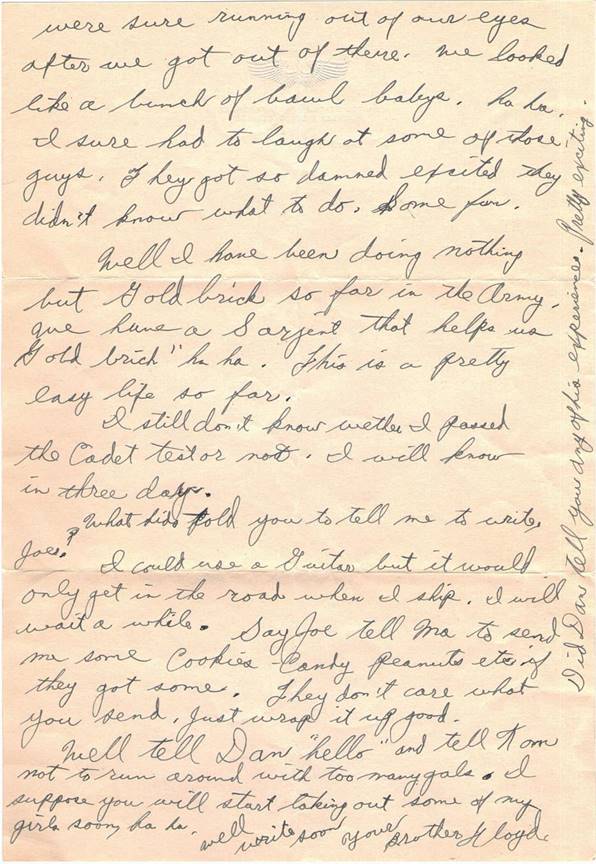 were sure running out of our eyes
after we got out of there. We looked
like a bunch of bawl babys. ha ha.
I sure had to laugh at some of those
guys. They got so damned exsited they
didn't know what to do. Some fun.
Well I have been doing nothing
but Goldbrick so far in the Army.
have a Sarjent that helps us
"Gold brick" ha ha. This is a pretty
easy life so far.
I still don't know wether I passed
the Cadet test or not. I will know
in three days.
What kids told you to tell me to write,
Joe?
I could use a Guitar but it would
only get in the road when I ship. I will
wait a while. Say Joe tell Ma to send
me some Cookies - Candy Peanuts etc if
they got some. They don't care what
you send, just wrap it up good.
Well tell Dan "hello" and tell Tom
not to run around with too many gals. I
suppose you will start taking out some of my
girls soon, ha ha. Well write soon Your Brother Lloyd.
Did Dan tell you any of his experiences. Pretty exciting.